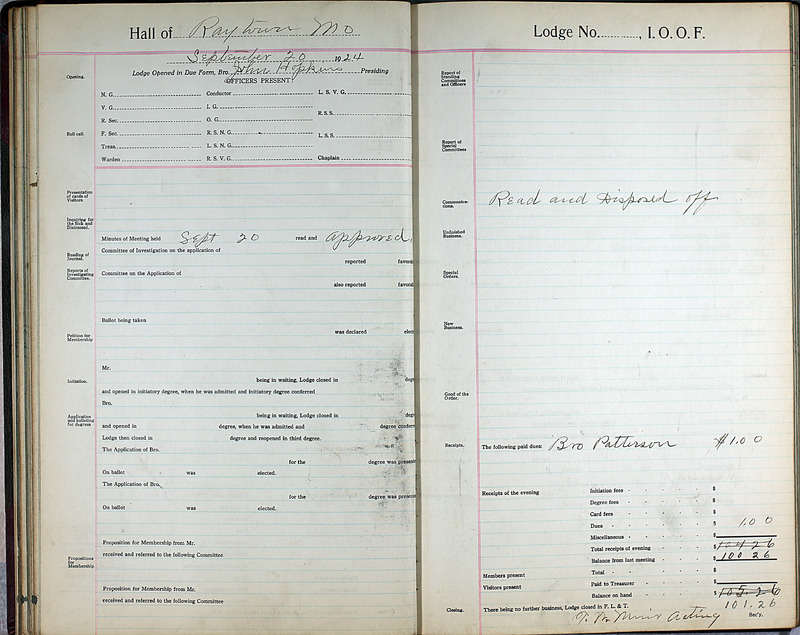 Hall of Raytown Mo
September 20 1924
Opening.
Lodge Opened in Due Form, Bro. John Hopkins Presiding
OFFICERS PRESENT:
N. G. Conductor L. S. V. G.
V. G. I. G.
R. Sec. O. G. R.S.S.
Roll call. F. Sec. R. S. N. G.
Treas. L. S. N. G. L.S.S.
Warden R. S. V. G. Chaplain
Presentation of cards of Visitors.
Inquiring for the Sick and Distressed.
Minutes of Meeting held Sept 20 read and approved
Reading of Journal.
Committee of Investigation on the application of
reported favora
Reports of Investigating Committee.
Committee on the Application of
also reported favora
Ballot being taken
Petition for Membership
was declared elec
Mr.
Initiation.
being in waiting, Lodge closed in degr
and opened in initiatory degree, when he was admitted and initiatory degree conferred
Bro.
Application and balloting for degrees
being in waiting, Lodge closed in degr
and opened in degree, when he was admitted and degree conferr
Lodge then closed in degree and reopened in third degree.
The Application of Bro.
for the degree was present
On ballot was elected.
The Application of Bro.
for the degree was present
On ballot was elected.
Proposition for Membership from Mr.
Propositions for Membership
received and referred to the following Committee
Proposition for Membership from Mr.
received and referred to the following Committee
Lodge No. , I. O. O. F.
Report of Standing Committees and Officers
Report of Special Committees
Communications. Read and Disposed off
Unfinished Business.
Special Orders.
New Business.
Good of the Order.
Receipts. The following paid dues: Bro Patterson $1.00
Receipts of the evening Initiation fees $
Degree fees $
Card fees $
Dues $ 1.00
Miscellaneous
Total receipts of evening $
Balance from last meeting $ 100 26
Total $
Members present
Visitors present Paid to Treasurer $
Balance on hand $ 105.26
101.26
Closing. There being no further business, Lodge closed in F. L. & T.
Acting Sec'y.